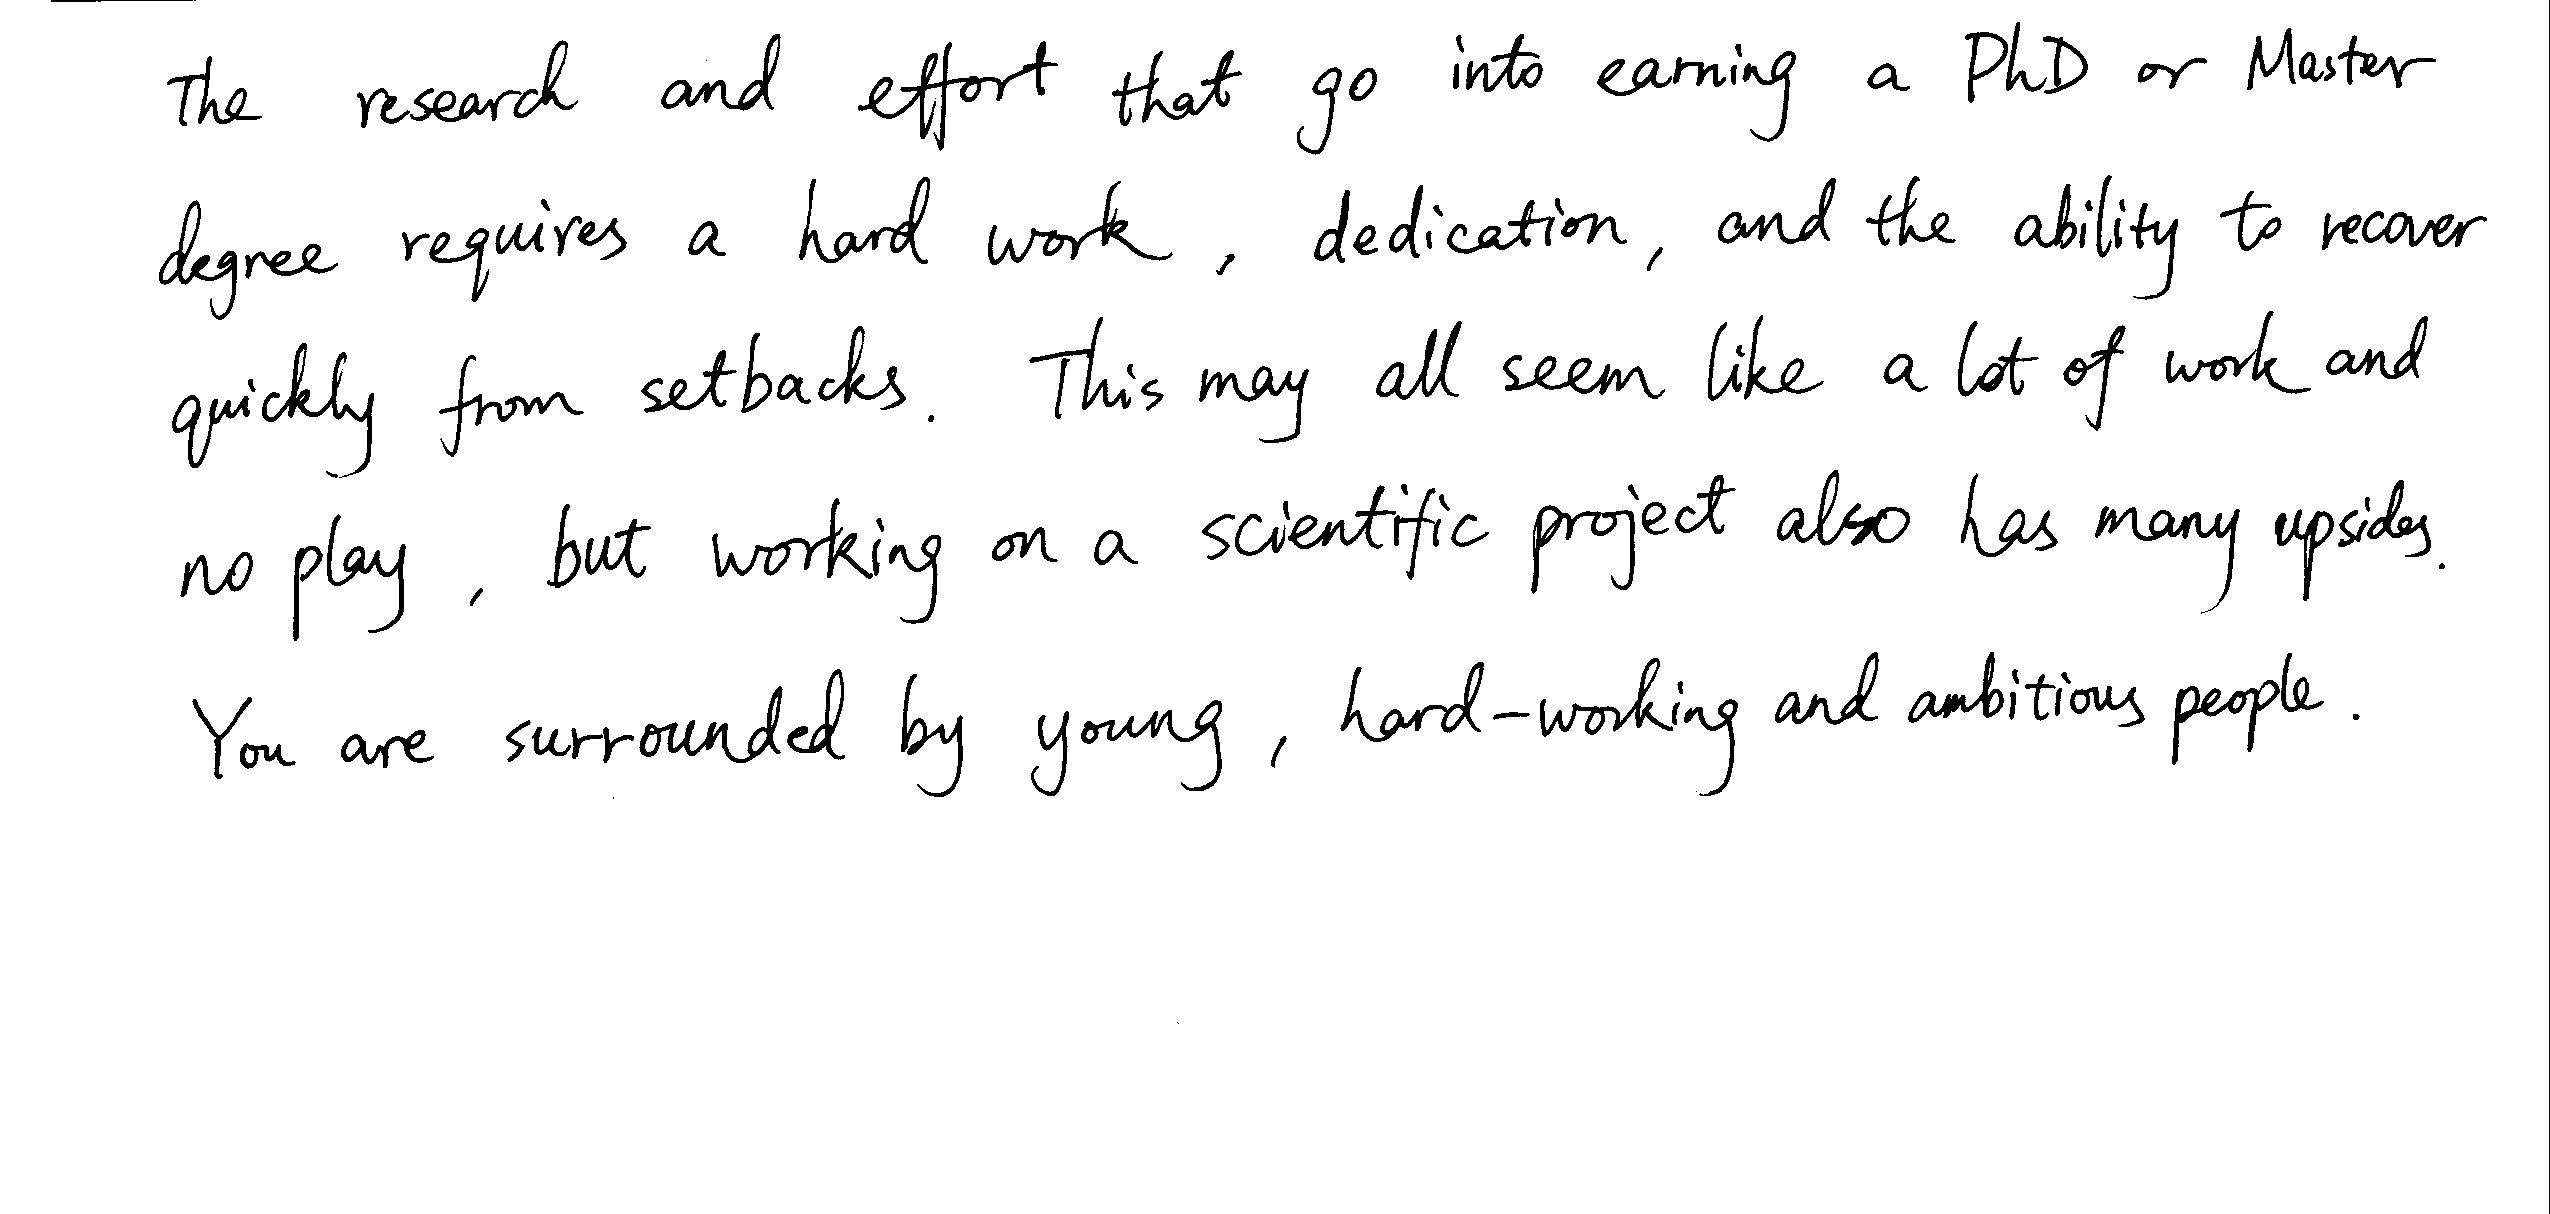 The research and effort that go into earning a PhD or Master
degree requires a hard work, dedication, and the ability to recover
quickly from setbacks. This may all seem like a lot of work and
no play, but working on a scientific project also has many upsides.
You are surrounded by young, hard-working and ambitious people.